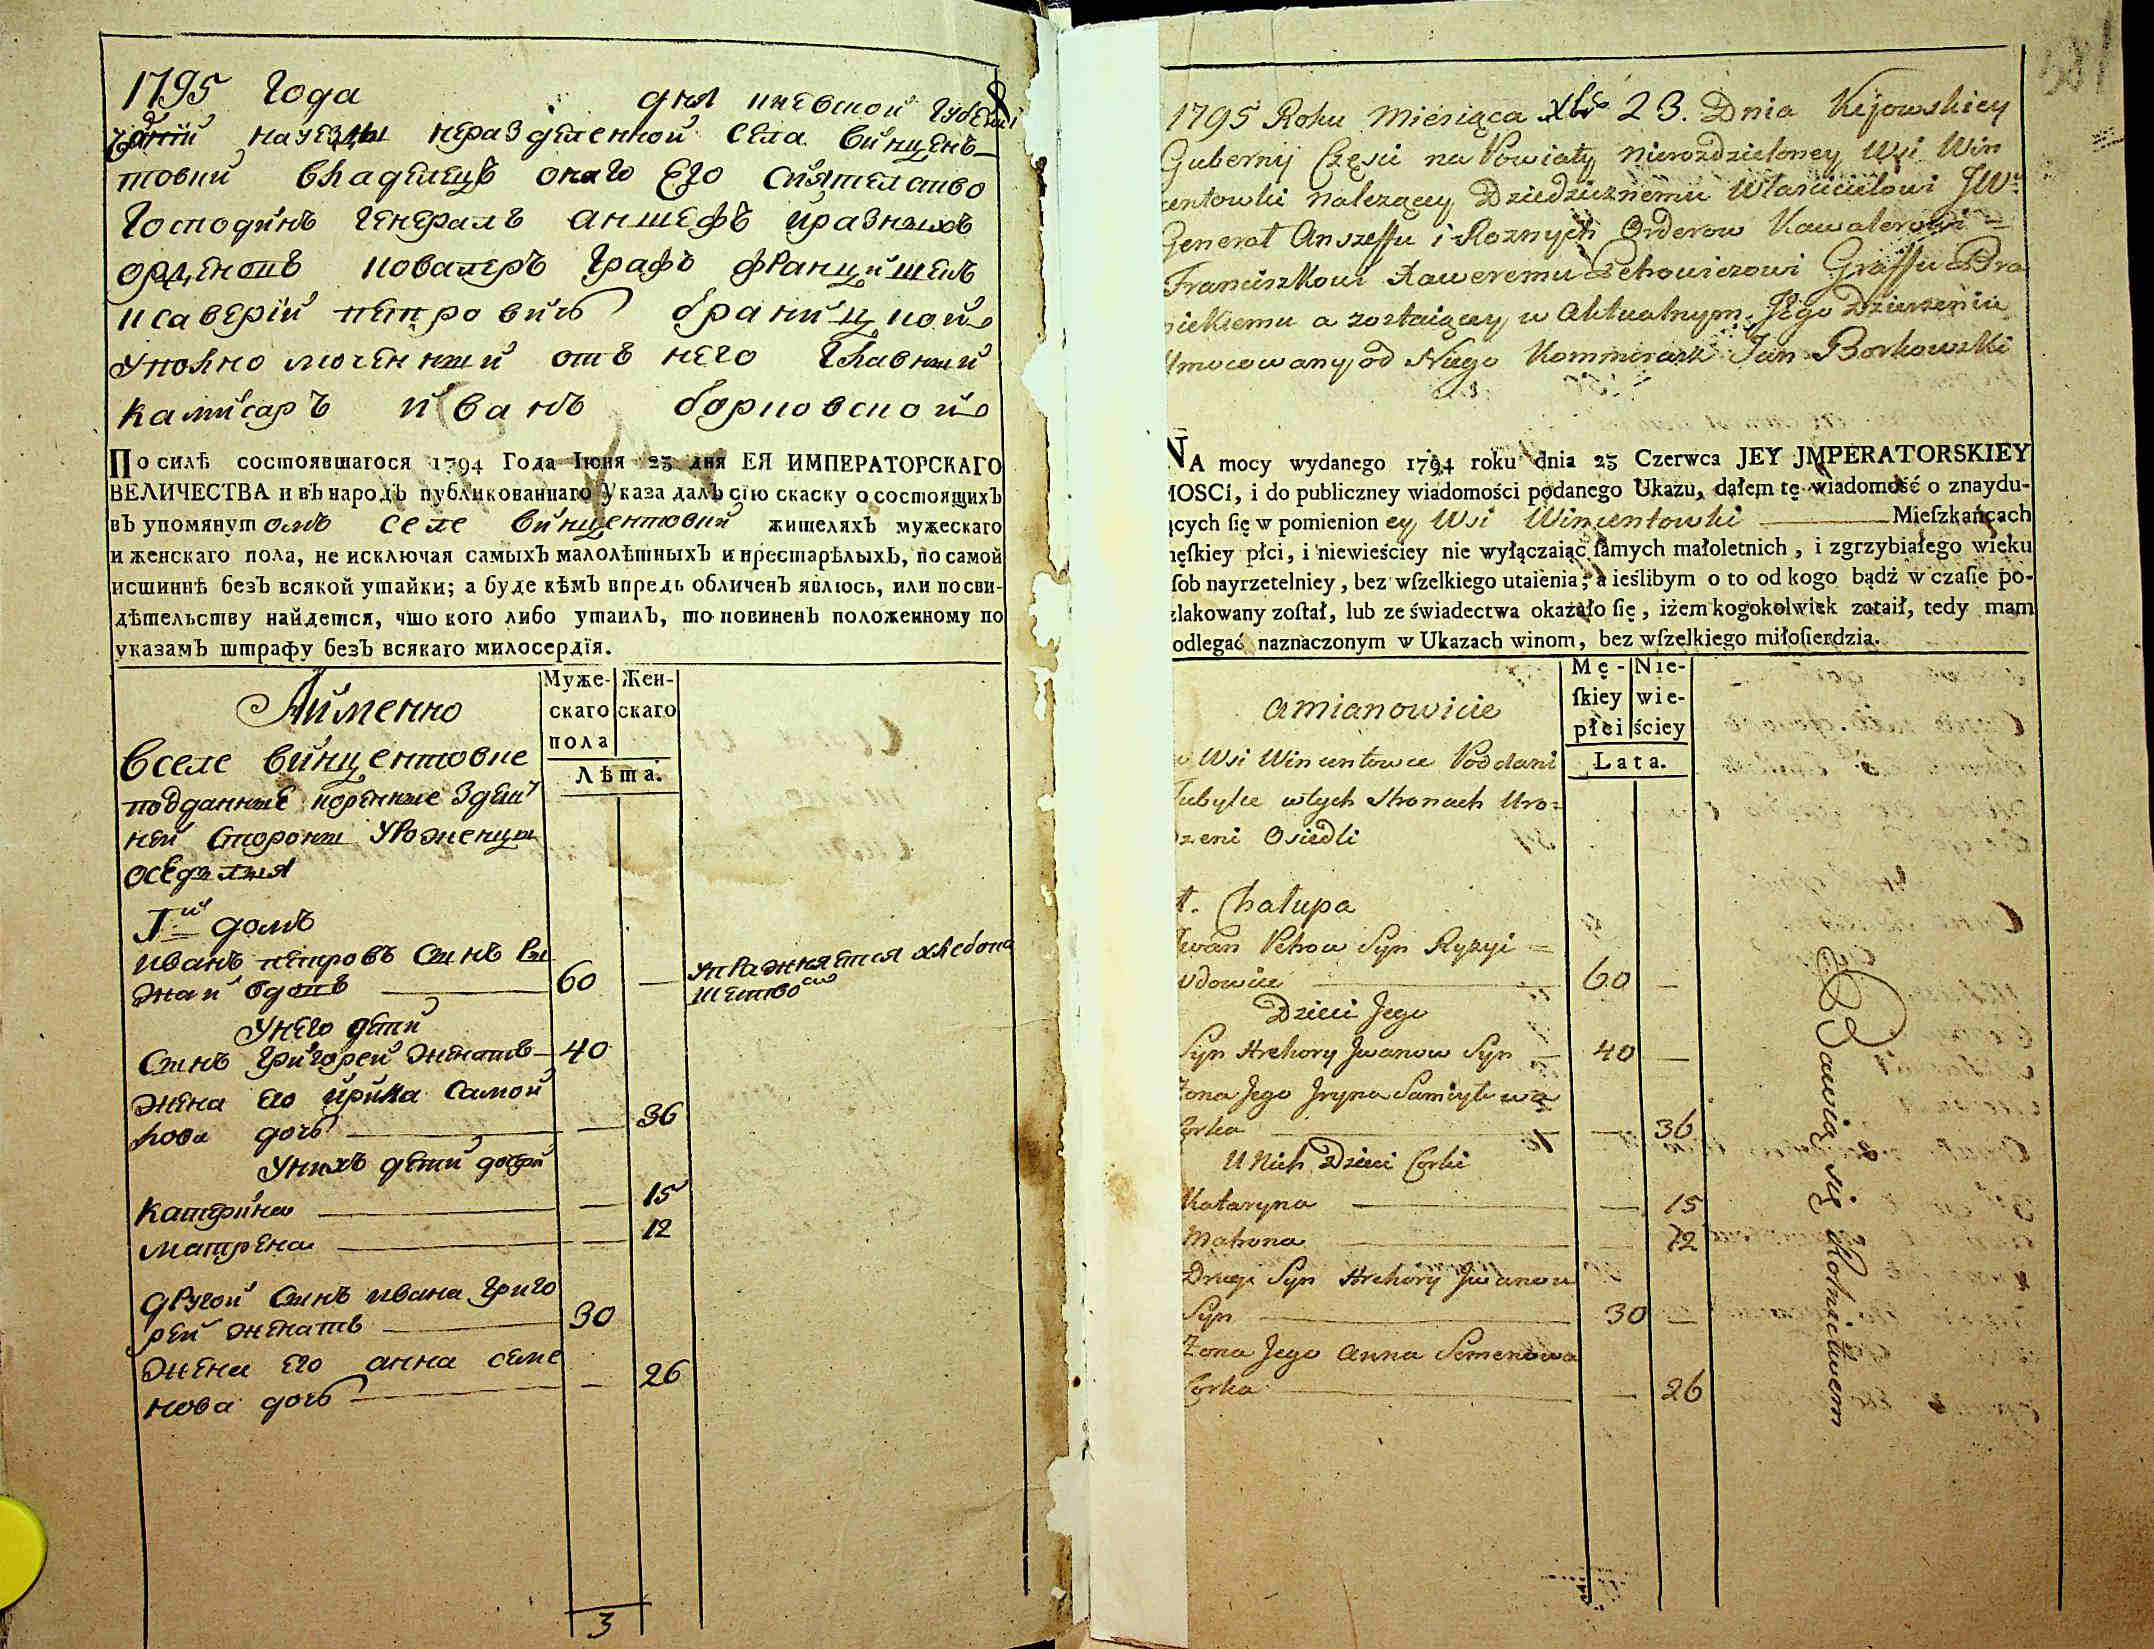 1795 Года дня киевской Губернїи
Части на уезды неразделенной Села винцен-
товки владелецъ онаго Его Сиятелство
Господинъ Генералъ аншефъ и разныхъ
орденовъ кавалеръ Графъ францишекъ
ксаверїй петровичь браницкой
Уполномоченный отъ него Главный
камисаръ иванъ борковской
По силѣ состоявшагося 1794 Года Іюня 23 дня ЕЯ ИМПЕРАТОРСКАГО
ВЕЛИЧЕСТВА и въ народъ публикованнаго Указа далъ сїю скаску о состоящихъ
въ упомянутомъ селе винцентовки жителяхъ мужескаго
и женскаго пола, не исключая самыхъ малолѣтныхъ и престарѣлыхъ, по самой
истиннѣ безъ всякой утайки; а буде кѣмъ впредь обличенъ явлюсь, или по сви-
дѣтельству найдется, что кого либо утаилъ, то повиненъ положенному по
указамъ штрафу безъ всякаго милосердїя.
Муже- Жен-
скаго скаго
пола
Лѣта.
Аименно
вселе винцентовке
подданные коренные здеш
ней Стороны Уроженцы
оседлыя
1й домъ
иванъ петровъ Сынъ Ры
жай вдовъ 60 — Упражняется хлебопа
шествомъ
Унего дети
Сынъ Григорей женатъ 40
жена его ирина Самой
лова дочь — 36
Унихъ дети дочери
катерина — 15
матрена — 12
другой Сынъ ивана Григо
рей женатъ 30
жена его анна семе
нова дочь — 26
3
1795 Roku Miesiąca Xbra 23. Dnia Kijowskiey
Gubernij Części na Powiaty nierozdzieloney Wsi Win
centowki nalezącey Dziedzicznemu Włascicielowi JWu
Generał Anszeffu i Roznych Orderow Kawalerowi =
Franciszkowi Xaweremu Petrowiczowi Graffu Bra
nickiemu a zostaiącey w Aktualnym Jego Dzierzeniu
Umocowany od Niego Kommissarz Jan Borkowski
NA mocy wydanego 1794 roku dnia 23 Czerwca JEY JMPERATORSKIEY
MOSCi, i do publiczney wiadomości podanego Ukazu, dałem tę wiadomość o znaydu-
ących ſię w pomienioney Wsi Wincentowki Mieſzkańcach
męſkiey płci, i niewieściey nie wyłączaiąc ſamych małoletnich, i zgrzybiałego wieku
ſob nayrzetelniey, bez wſzelkiego utaienia; a ieślibym o to od kogo bądź w czaſie po-
zlakowany zoſtał, lub ze świadectwa okazało ſię, iżem kogokolwiek zataił, tedy mam
odlegać naznaczonym w Ukazach winom, bez wſzelkiego miłoſierdzia.
Mę- Nie-
ſkiey wie-
płci ściey
Lata.
amianowicie
w Wsi Wincentowce Poddani
Tubylce wtych stronach Uro=
dzeni Osiedli
1. Chałupa
Iwan Petrow Syn Ryzyi =
wdowiec 60 —
Dzieci Jego
Syn Hrehory Jwanow Syn 40 —
Zona Jego Jryna Samiyłowa
Corka — 36
U Nich Dzieci Corki
Kataryna — 15
Matrona — 12
Drugi Syn Hrehory Jwanow
Syn 30 —
Zona Jego Anna Semenowa
Corka — 26
Bawią się Rolnictwem